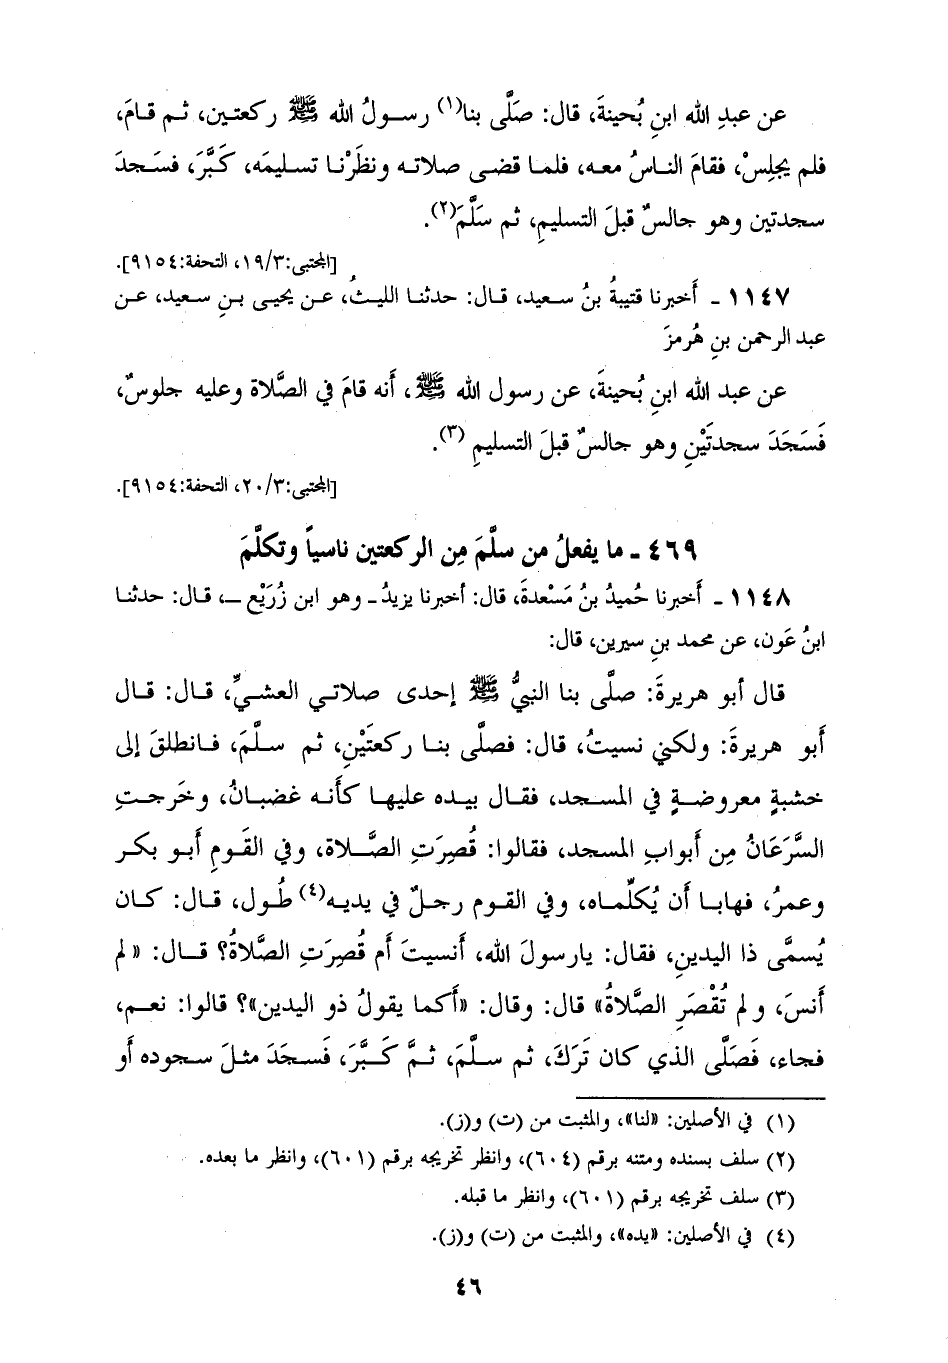 عن عبدِ الله ابنِ بُحينةَ، قال: صَلَّى بنا(١) رسولُ الله ﷺ ركعتين، ثم قامَ،
فلم يجلِسْ، فقامَ الناسُ معه، فلما قضى صلاته ونظَرْنا تسليمَه، كَبَّرَ، فسَجدَ
سجدتين وهو جالسٌ قبلَ التسليمِ، ثم سَلَّمَ(٢).
[المجتبى: ١٩/٣، التحفة: ٩١٥٤].
١١٤٧ ـ أخبرنا قتيبةُ بنُ سعيد، قال: حدثنا الليثُ، عن يحيى بنِ سعيد، عن
عبد الرحمن بنِ هُرمزَ
عن عبد الله ابنِ بُحينةَ، عن رسول الله ﷺ، أنه قامَ في الصَّلاة وعليه جلوسٌ،
فَسَجَدَ سجدتَيْنِ وهو جالسٌ قبلَ التسليمِ (٣).
[المجتبى: ٢٠/٣، التحفة: ٩١٥٤].
٤٦٩ ـ ما يفعلُ من سلَّمَ مِن الركعتين ناسياً وتكلَّمَ
١١٤٨ ـ أخبرنا حُميدُ بنُ مَسْعدةَ، قال: أخبرنا يزيدُ ـ وهو ابن زُرَيْع ـ، قال: حدثنا
ابنُ عَون، عن محمد بنِ سيرين، قال:
قال أبو هريرةَ: صلَّى بنا النبيُّ ﷺ إحدى صلاتي العشيِّ، قال: قال
أبو هريرةَ: ولكني نسيتُ، قال: فصلَّى بنا ركعتَيْنِ، ثم سلَّمَ، فانطلقَ إلى
خشبةٍ معروضةٍ في المسجد، فقال بيده عليها كأنه غضبانُ، وخَرجتِ
السَّرَعَانُ مِن أبوابِ المسجد، فقالوا: قُصِرَتِ الصَّلاة، وفي القَومِ أبو بكر
وعمرُ، فهابا أن يُكلِّماه، وفي القوم رجلٌ في يديه(٤) طُول، قال: كان
يُسمَّى ذا اليدينِ، فقال: يارسولَ الله، أنسيتَ أم قُصِرَتِ الصَّلاةُ؟ قال: «لم
أنسَ، ولم تُقْصَرِ الصَّلاةُ» قال: وقال: «أكما يقولُ ذو اليدين»؟ قالوا: نعم،
فجاء، فَصَلَّى الذي كان تَرَكَ، ثم سلَّمَ، ثمَّ كَبَّرَ، فَسجَدَ مثلَ سجوده أو
(١) في الأصلين: «لنا»، والمثبت من (ت) و(ز).
(٢) سلف بسنده ومتنه برقم (٦٠٤)، وانظر تخريجه برقم (٦٠١)، وانظر ما بعده.
(٣) سلف تخريجه برقم (٦٠١)، وانظر ما قبله.
(٤) في الأصلين: «يده»، والمثبت من (ت) و(ز).
٤٦